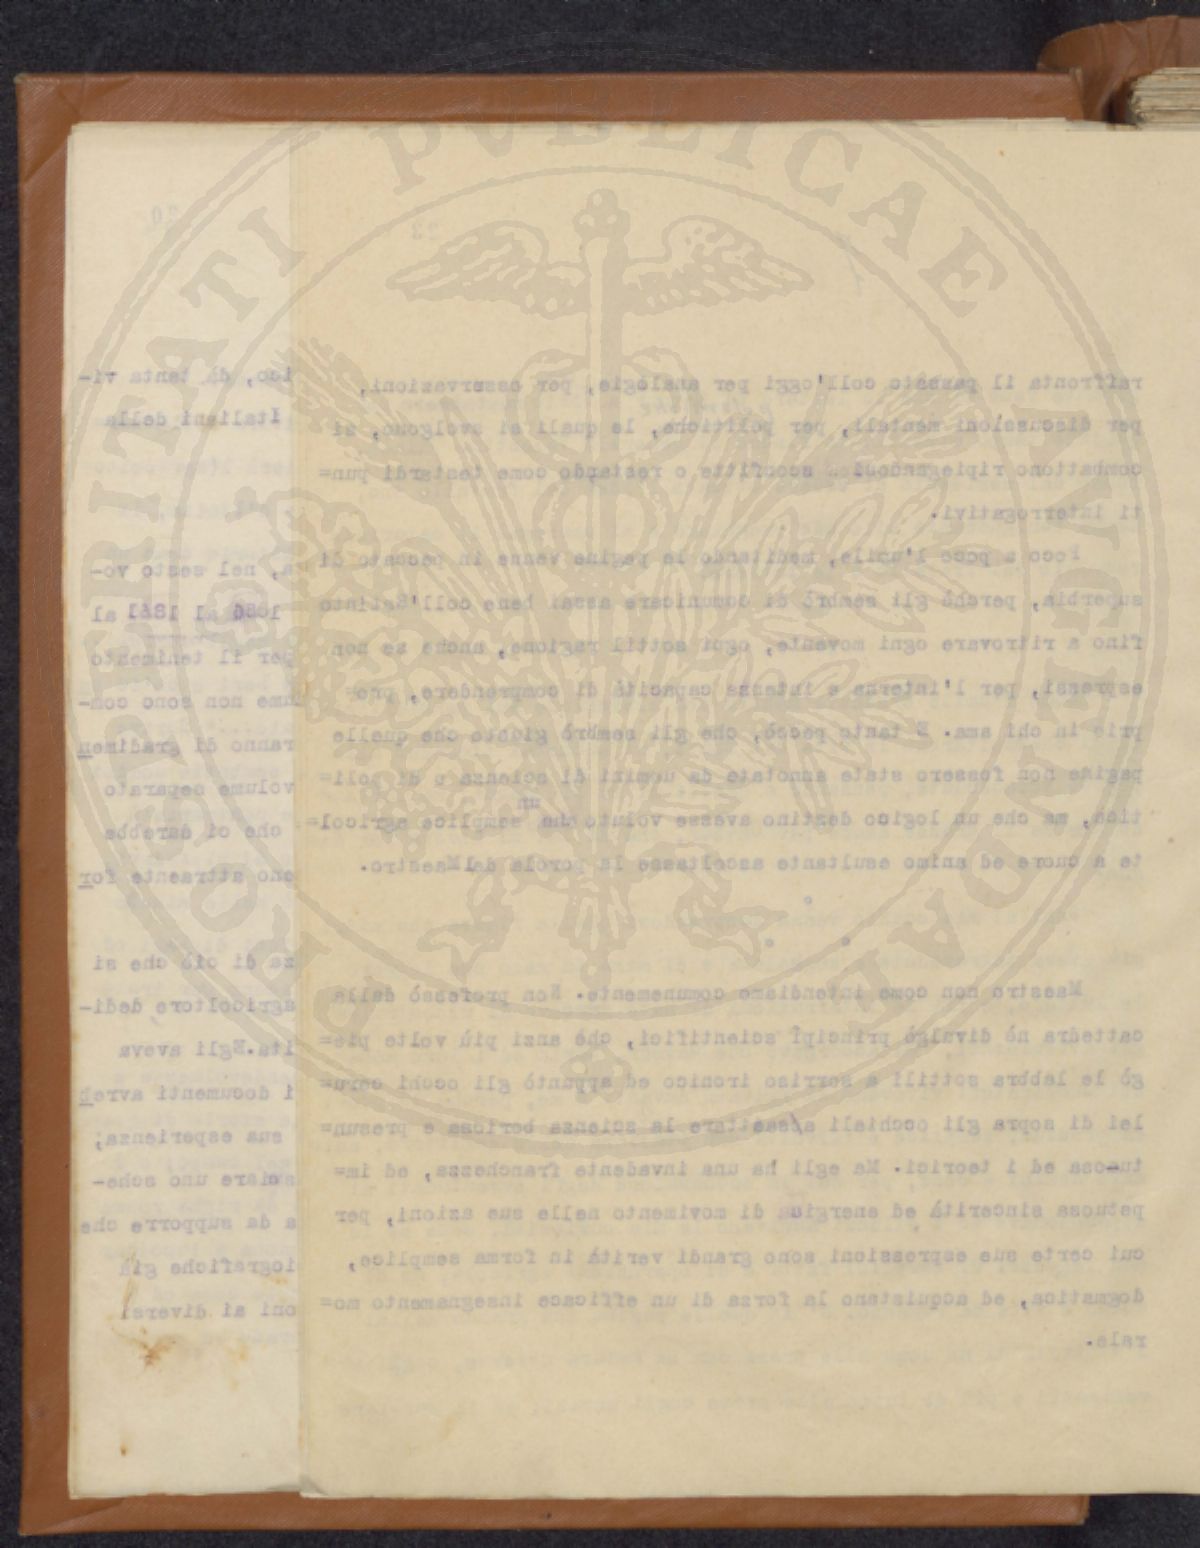 PROSPERITATI PUBLICAE AVGENDAE
23
raffronta il passato coll'oggi per analogie, per osservazioni,
per discussioni mentali, per politiche, le quali si svolgono, si
combattono ripiegandosi sconfitte o restando come testardi pun=
ti interrogativi.
Poco a poco l'umile, meditando le pagine venne in peccato di
superbia, perchè gli sembrò di comunicare assai bene coll'Estinto
fino a ritrovare ogni movente, ogni sottil ragione, anche se non
espressi, per l'interna e intensa capacità di comprendere, pro=
prie in chi ama. E tanto peccò, che gli sembrò giusto che quelle
pagine non fossero state annotate da uomini di scienza o di poli=
tica, ma che un logico destino avesse voluto che un semplice agricol=
te a cuore ed animo esultante ascoltasse la parola del Maestro.
Maestro non come intendiamo comunemente. Non professò dalla
cattedra nè divulgò principî scientifici, chè anzi più volte pie=
gò le labbra sottili a sorriso ironico ed appuntò gli occhi ceru=
lei di sopra gli occhiali a/saettare la scienza boriosa e presun=
tuosa ed i teorici. Ma egli ha una invadente franchezza, ed im=
petuosa sincerità ed energia di movimento nelle sue azioni, per
cui certe sue espressioni sono grandi verità in forma semplice,
dogmatica, ed acquistano la forza di un efficace insegnamento mo=
rale.
20
ico, da tanta vi-
Italiani della
a, nel sesto vo-
al 1861 al
per il tenimento
ume non sono con-
ranno di gradimen
volume separato
che ci darebbe
ono attraente for
za di ciò che si
agricoltore dedi-
ita. Egli aveva
i documenti avreb
sua esperienza,
uno sche-
a da supporre che
iografiche già
oni ai diversi